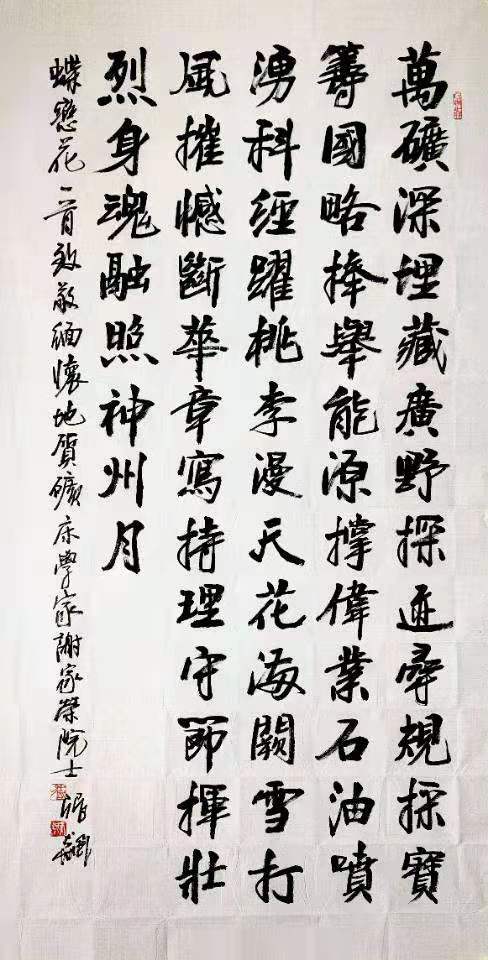 萬礦深埋藏廣野探迹尋規探寶
籌國略捧舉能源撐偉業石油噴
湧科經躍桃李漫天花海闕雪打
風摧憾斷華章寫持理守節揮壯
烈身魂融照神州月
蝶戀花一首致敬緬懷地質礦床學家謝家榮院士